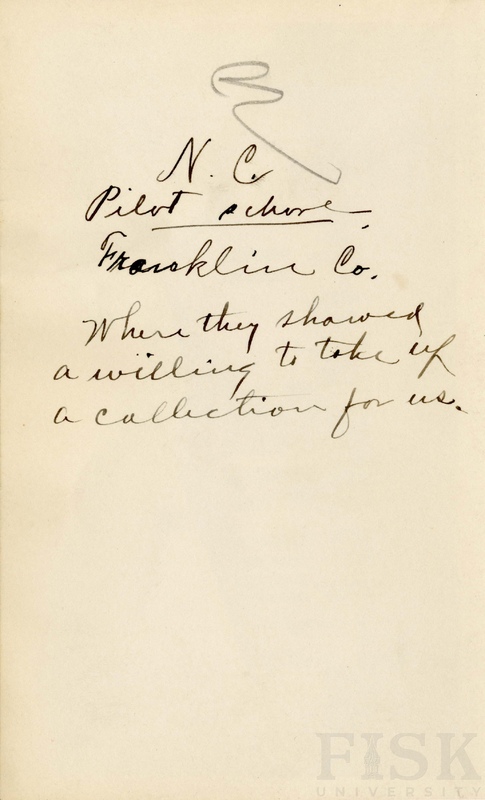 N. C.
Pilot school
Franklin Co.
Where they showed
a willing to take up
a collection for us.
FISK
UNIVERSITY